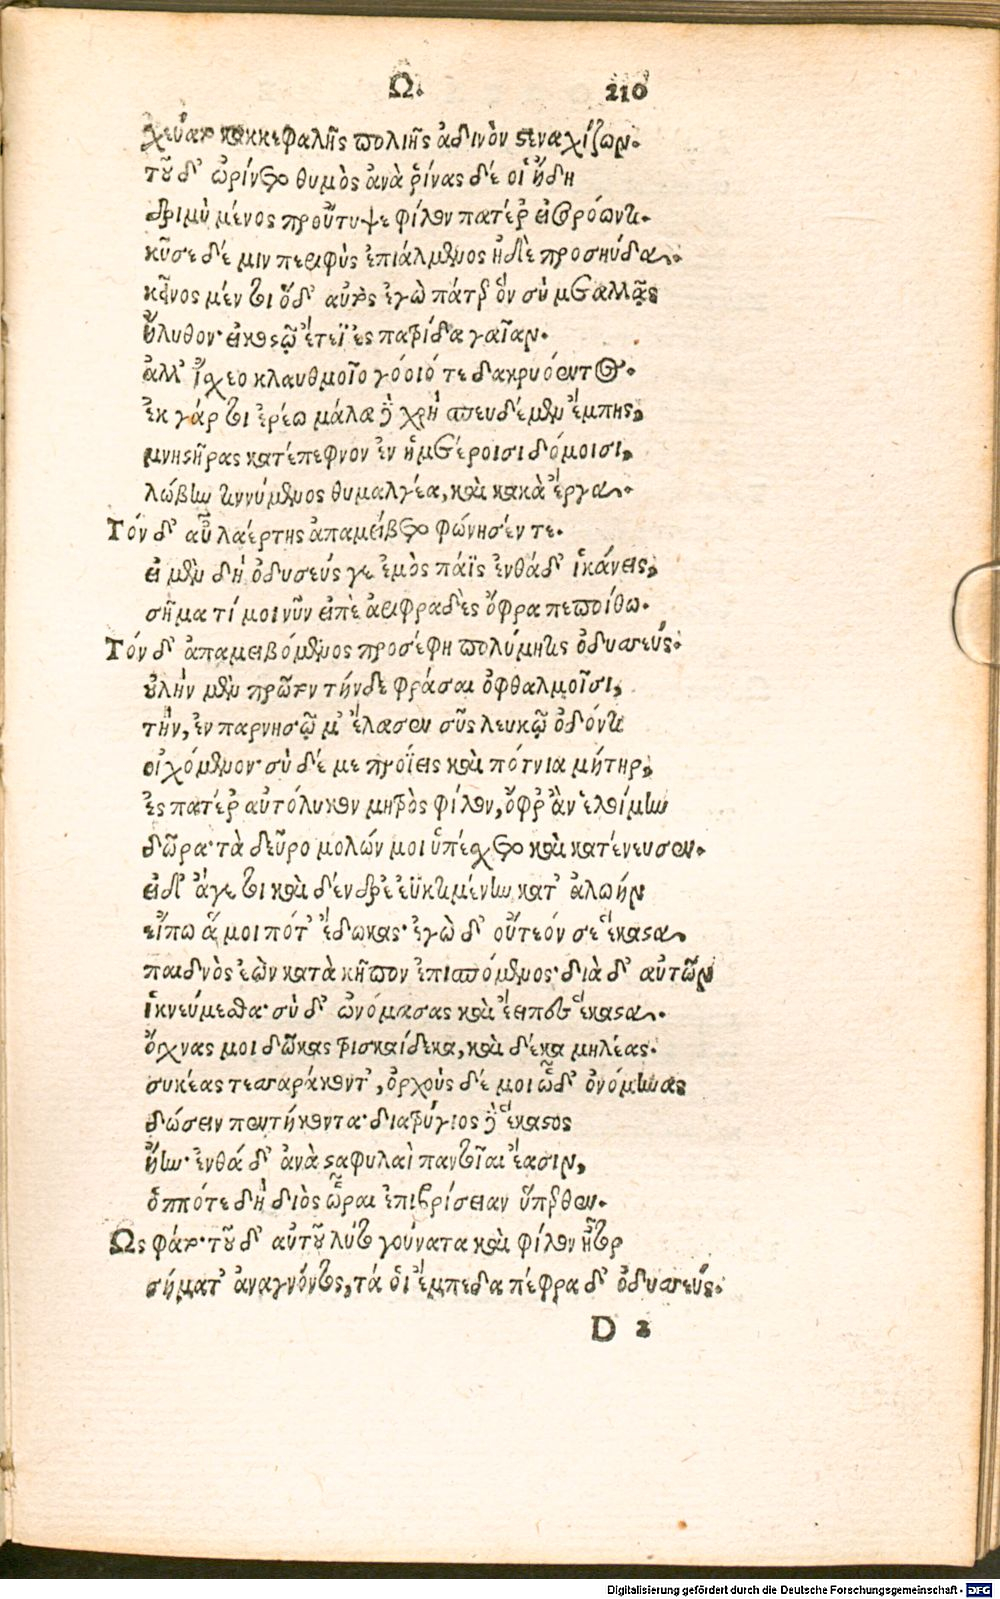 Ω. 210
χεύατο κακκεφαλῆς πολιῆς ἁδινὸν στεναχίζων.
τοῦ δ' ὠρίνετο θυμὸς ἀνὰ ῥίνας δέ οἱ ἤδη
δριμὺ μένος προὔτυψε φίλον πατέρ' εἰσορόωντι.
κῦσε δέ μιν περιφὺς ἐπιάλμενος ἠδὲ προσηύδα.
κεῖνος μέν τοι ὅδ' αὐτὸς ἐγὼ πάτερ ὃν σὺ μεταλλᾷς
ἤλυθον· εἰκοστῷ ἔτεϊ ἐς πατρίδα γαῖαν.
ἀλλ' ἴσχεο κλαυθμοῖο γόοιό τε δακρυόεντος.
ἐκ γάρ τοι ἐρέω μάλα δὲ χρὴ σπευδέμεν ἔμπης,
μνηστῆρας κατέπεφνον ἐν ἡμετέροισι δόμοισι,
λώβην τιννύμενος θυμαλγέα, καὶ κακὰ ἔργα.
Τόν δ' αὖ λαέρτης ἀπαμείβετο φώνησέν τε.
εἰ μὲν δὴ ὀδυσεύς γε ἐμὸς πάϊς ἐνθάδ' ἱκάνεις,
σῆμα τί μοι νῦν εἰπὲ ἀριφραδὲς ὄφρα πεποίθω.
Τόν δ' ἀπαμειβόμενος προσέφη πολύμητις ὀδυσσεύς.
οὐλὴν μὲν πρῶτον τήνδε φράσαι ὀφθαλμοῖσι,
τὴν, ἐν παρνησῷ μ' ἔλασεν σῦς λευκῷ ὀδόντι
οἰχόμενον· σὺ δέ με προΐεις καὶ πότνια μήτηρ,
ἐς πατέρ' αὐτόλυκον μητρὸς φίλον, ὄφρ' ἂν ἑλοίμην
δῶρα· τὰ δεῦρο μολών μοι ὑπέσχετο καὶ κατένευσεν.
εἰ δ' ἄγε τοι καὶ δένδρε' ἐϋκτιμένην κατ' ἀλωήν
εἴπω ἅ μοι πότ' ἔδωκας· ἐγὼ δ' οὕτεόν σε ἕκαστα
παιδνὸς ἐὼν κατὰ κῆπον ἐπισπόμενος· διὰ δ' αὐτῶν
ἱκνεύμεσθα· σὺ δ' ὠνόμασας καὶ ἔειπες ἕκαστα.
ὄχνας μοι δῶκας τρισκαίδεκα, καὶ δέκα μηλέας.
συκέας τεσσαράκοντ', ὀρχοὺς δέ μοι ὧδ' ὀνόμηνας
δώσειν πεντήκοντα· διατρύγιος δὲ ἕκαστος
ἤην· ἐνθά δ' ἀνὰ σταφυλαὶ παντοῖαι ἔασιν,
ὁππότε δὴ διὸς ὧραι ἐπιβρίσειαν ὕπερθεν.
Ως φάτο· τοῦ δ' αὐτοῦ λύτο γούνατα καὶ φίλον ἦτορ
σήματ' ἀναγνόντος, τά ὁἱ ἔμπεδα πέφραδ' ὀδυσσεύς.
D 2
Digitalisierung gefördert durch die Deutsche Forschungsgemeinschaft - DFG